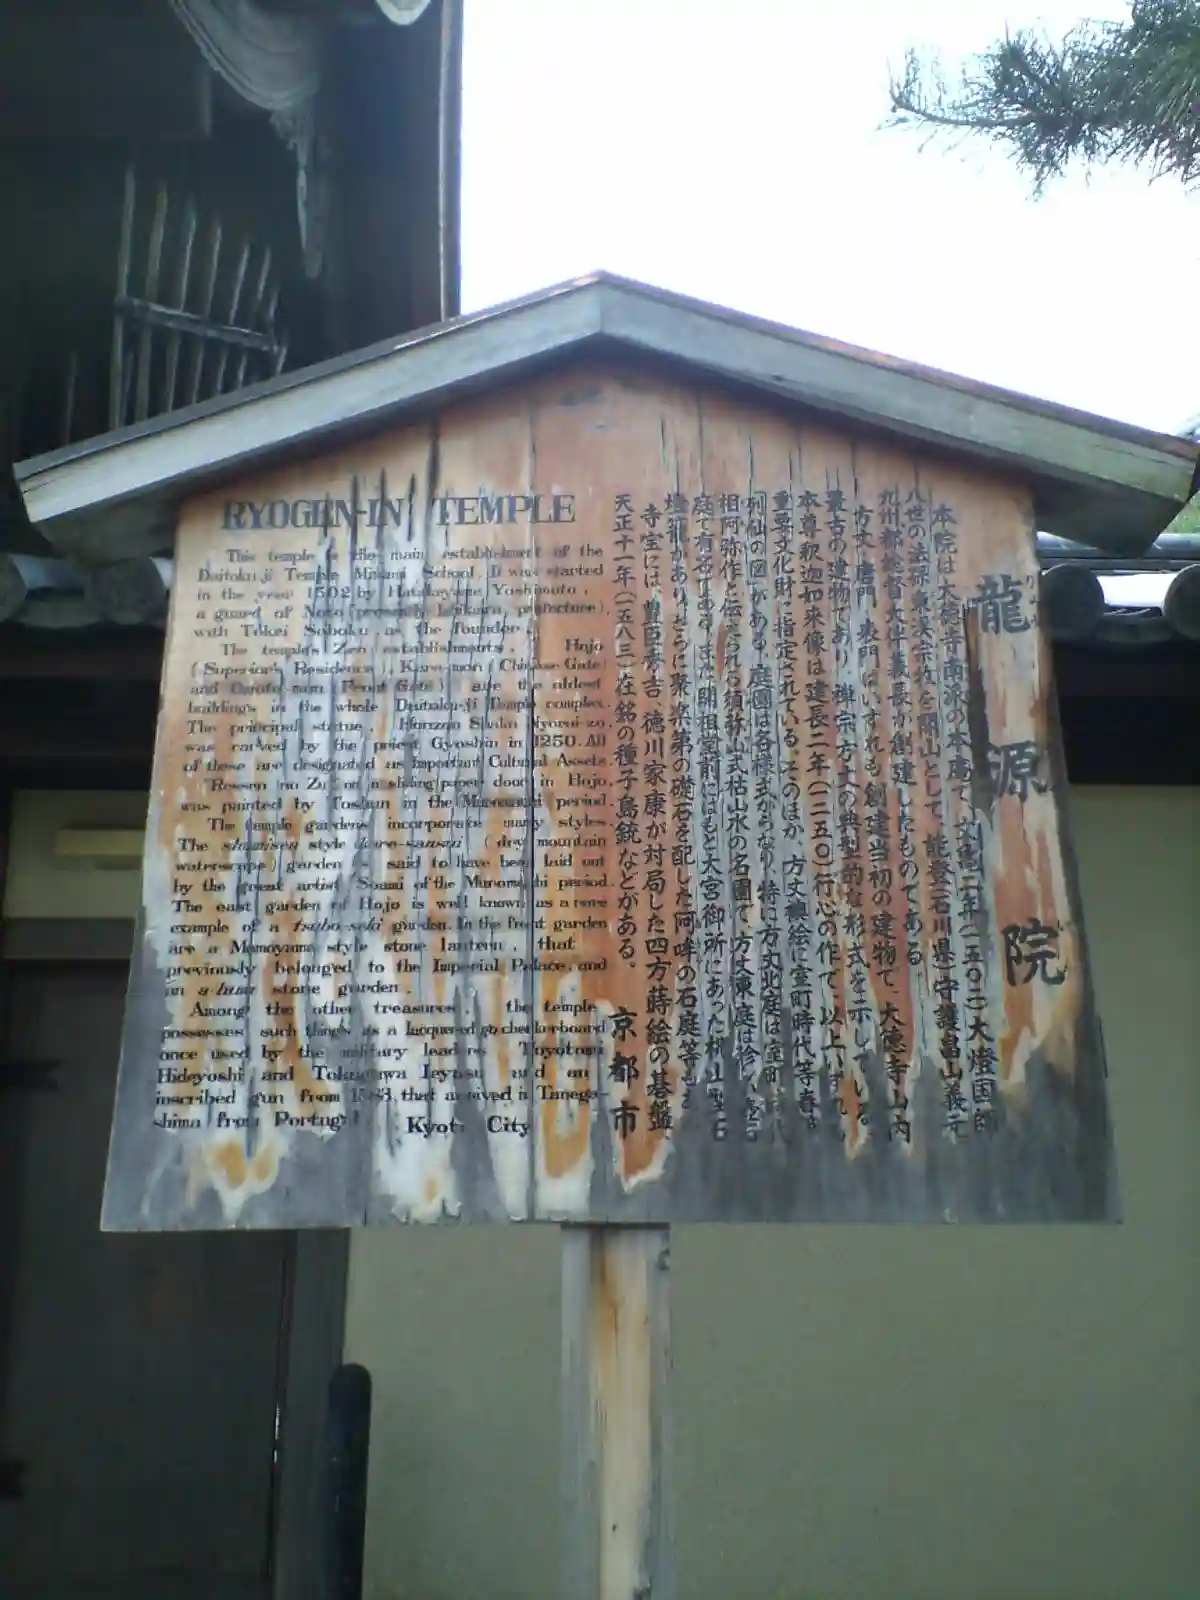 RYOGEN-IN TEMPLE
This temple is the main establishment of the
Daitoku-ji Temple Minami School. It was started
in the year 1502 by Hatakayama Yoshimoto,
a guard of Noto (presently Ishikawa, prefecture),
with Tokei Soboku as the founder.
The temple's Zen establishments, Hojo
(Superior's Residence), Kara-mon (Chinese Gate)
and Omote-mon (Front Gate) are the oldest
buildings in the whole Daitoku-ji Temple complex.
The principal statue, Honzon Shaka Nyorai-zo
was carved by the priest Gyoshin in 1250. All
of these are designated as Important Cultural Assets.
"Ressen no Zu" on sliding paper door in Hojo
was painted by Toshun in the Muromachi period.
The temple gardens incorporate many styles.
The shumisen style kare-sansui (dry mountain
waterscape) garden is said to have been laid out
by the great artist Soami of the Muromachi period.
The east garden of Hojo is well known as a rare
example of a tsubo-seki garden. In the front garden
are a Momoyama style stone lantern, that
previously belonged to the Imperial Palace, and
an a-hum stone garden.
Among the other treasures, the temple
possesses such things as a lacquered go checkerboard
once used by the military leaders Toyotomi
Hideyoshi and Tokugawa Ieyasu and an
inscribed gun from 1583, that arrived in Tanega-
shima from Portugal.
Kyoto City
龍源院
本院は大徳寺南派の本庵で、文亀二年(一五〇二)大燈国師
八世の法孫東渓宗牧を開山として、能登(石川県)守護畠山義元
九州都総督大伴義長が創建したものである。
方丈、唐門、表門はいずれも創建当初の建物で、大徳寺山内
最古の建物であり、禅宗方丈の典型的な形式を示している。
本尊釈迦如来像は建長二年(一二五〇)行心の作で、以上いずれも
重要文化財に指定されている。そのほか、方丈襖絵に室町時代等春筆
「列仙の図」がある。庭園は各様式からなり、特に方丈北庭は室町時代
相阿弥作と伝えられる須弥山式枯山水の名園で、方丈東庭は珍しい壷石
庭で有名である。また開祖堂前にはもと大宮御所にあった桃山型石
燈籠があり、さらに聚楽第の礎石を配した阿吽の石庭等もある
寺宝には、豊臣秀吉、徳川家康が対局した四方蒔絵の碁盤、
天正十一年(一五八三)在銘の種子島銃などがある。
京都市